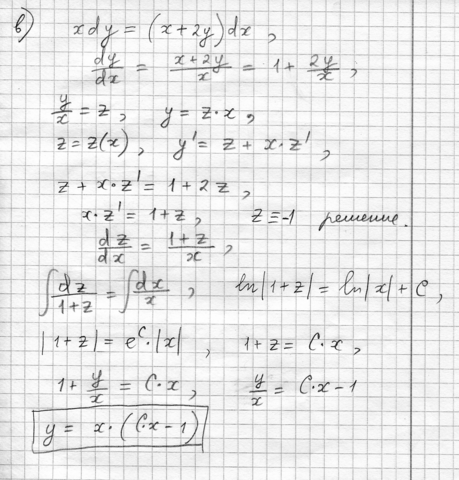 в) x dy = (x + 2y) dx ,
dy/dx = (x+2y)/x = 1 + 2y/x ;
y/x = z , y = z·x ,
z = z(x) , y' = z + x·z' ,
z + x·z' = 1 + 2z ,
x·z' = 1 + z , z ≡ -1 решение.
dz/dx = (1+z)/x ,
∫ dz/(1+z) = ∫ dx/x , ln|1+z| = ln|x| + C ,
|1+z| = e^c · |x| , 1+z = C·x ,
1 + y/x = C·x , y/x = C·x - 1
y = x·(C·x - 1)